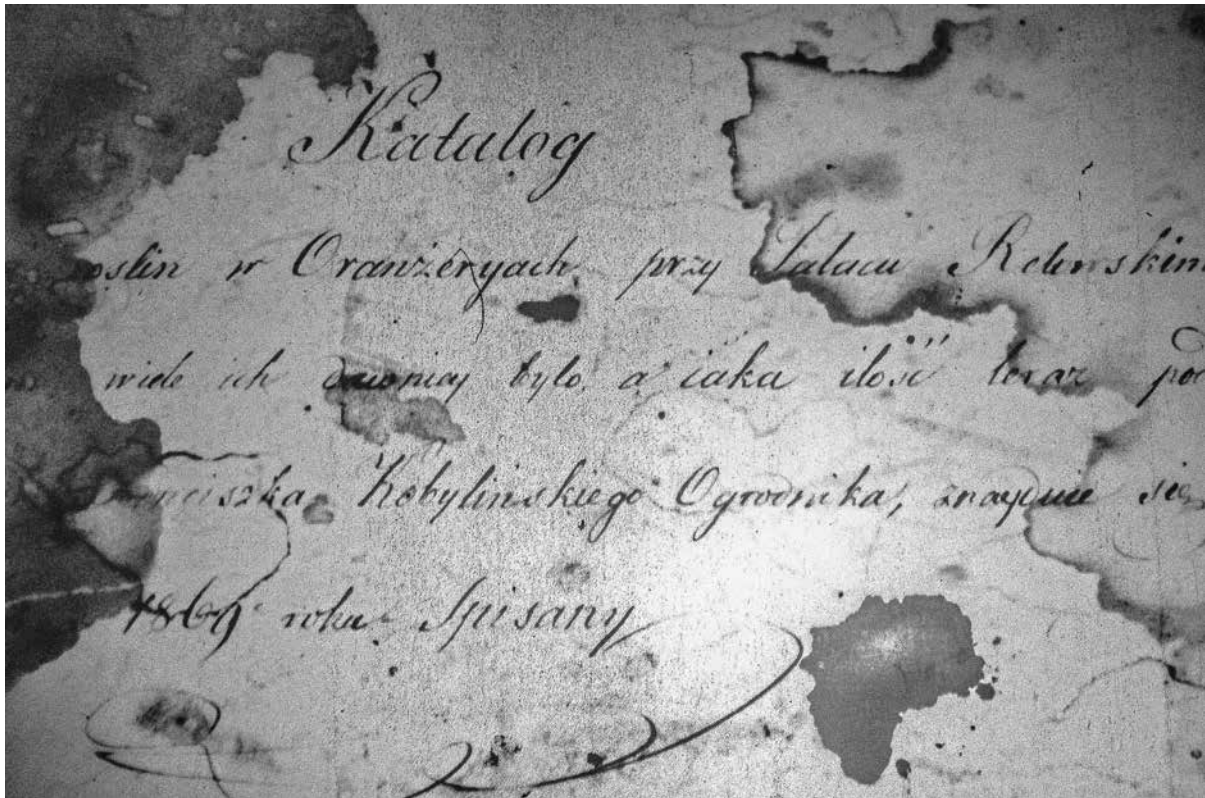 Katalog
oslin w Oranżeryach przy Pałacu
wiele ich dawniej bylo, a iaka ilość teraz
Kobylinskiego Ogrodnika, znayduie się
roku Spisany